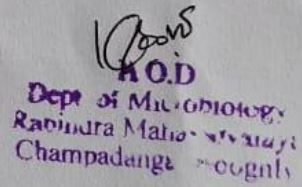 H.O.D
Dept of Microbiology
Rabindra Mahavidyalaya
Champadanga Hooghly